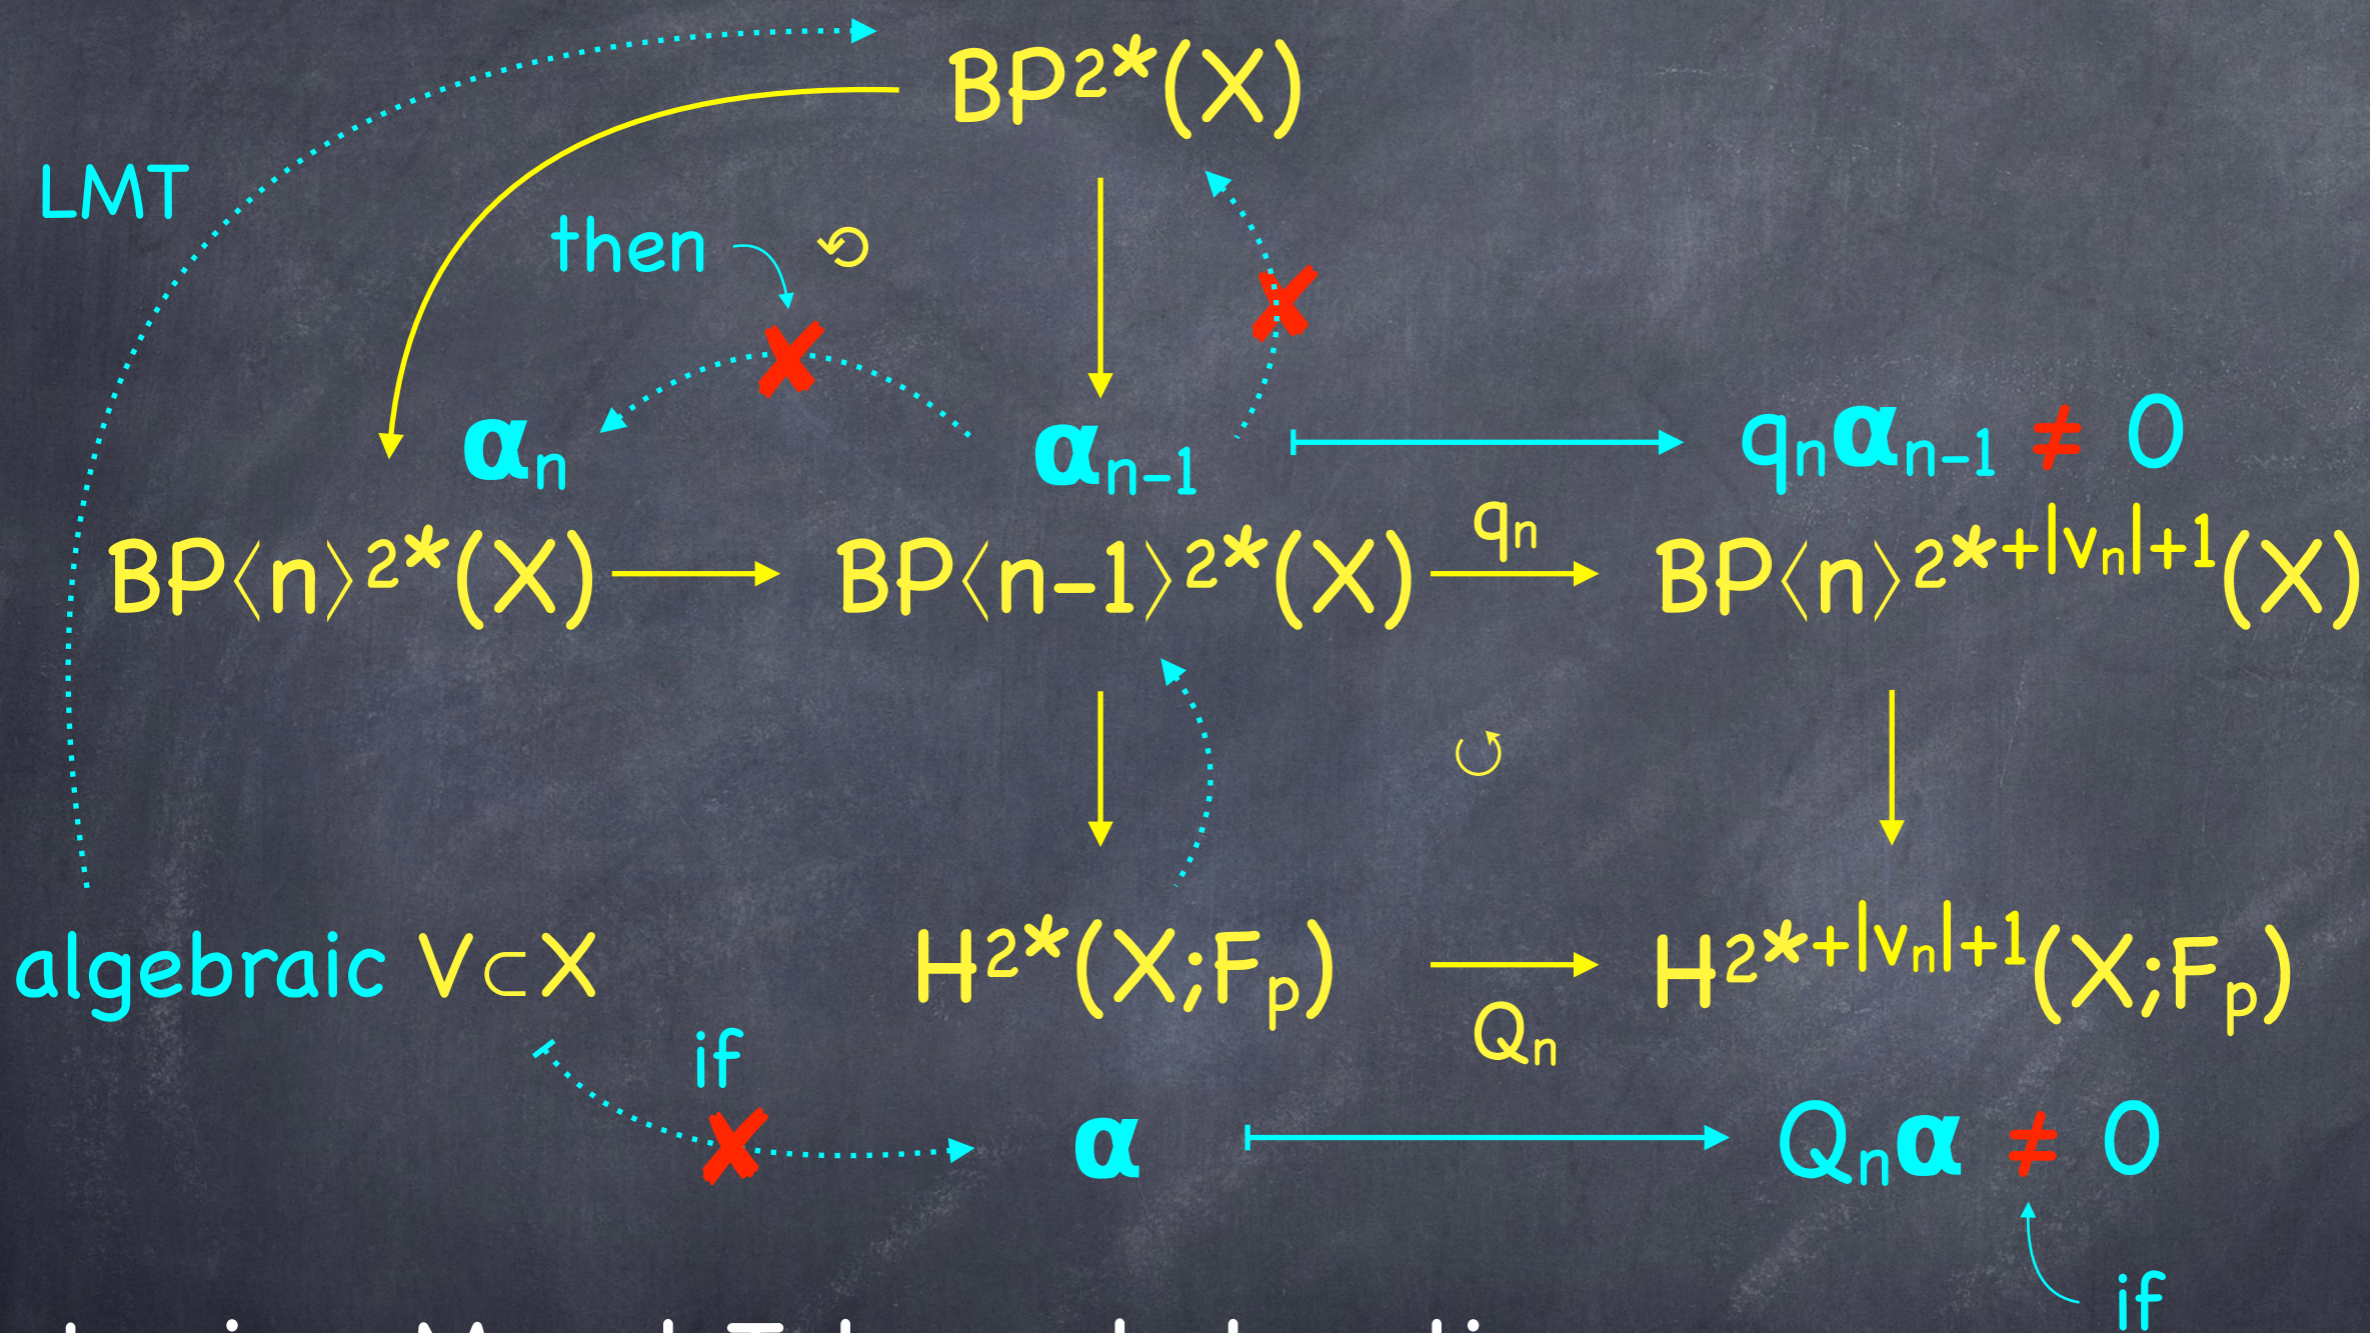 BP²*(X)
LMT
then ⟲
✘
✘
αₙ αₙ₋₁ qₙαₙ₋₁ ≠ 0
qₙ
BP⟨n⟩²*(X) → BP⟨n-1⟩²*(X) → BP⟨n⟩²*⁺|ᵛₙ|⁺¹(X)
↺
algebraic V⊂X H²*(X;Fₚ) → H²*⁺|ᵛₙ|⁺¹(X;Fₚ)
Qₙ
if
✘ α Qₙα ≠ 0
if